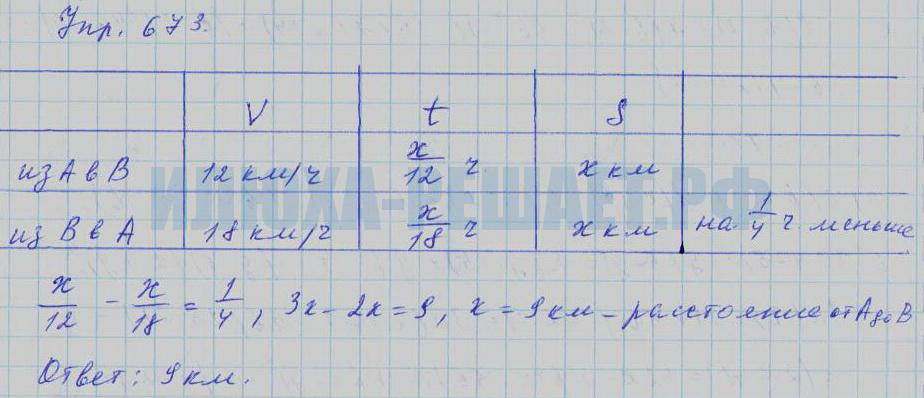 Упр. 673.
V t S
из А в В 12 км/ч x/12 ч x км
ИЛЮХА-РЕШАЕТ.РФ
из В в А 18 км/ч x/18 ч x км на 1/4 ч. меньше
x/12 - x/18 = 1/4, 3x - 2x = 9, x = 9 км - расстояние от А до В
Ответ: 9 км.